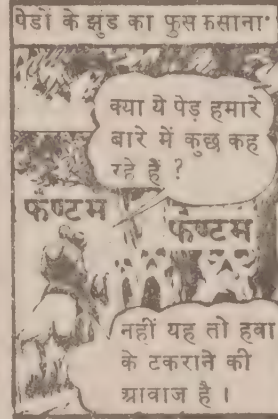 पेडों के झुंड का फुस फसाना
क्या ये पेड़ हमारे
बारे में कुछ कह
रहे हैं ?
फैण्टम
फैण्टम
नहीं यह तो हवा
के टकराने की
आवाज है ।